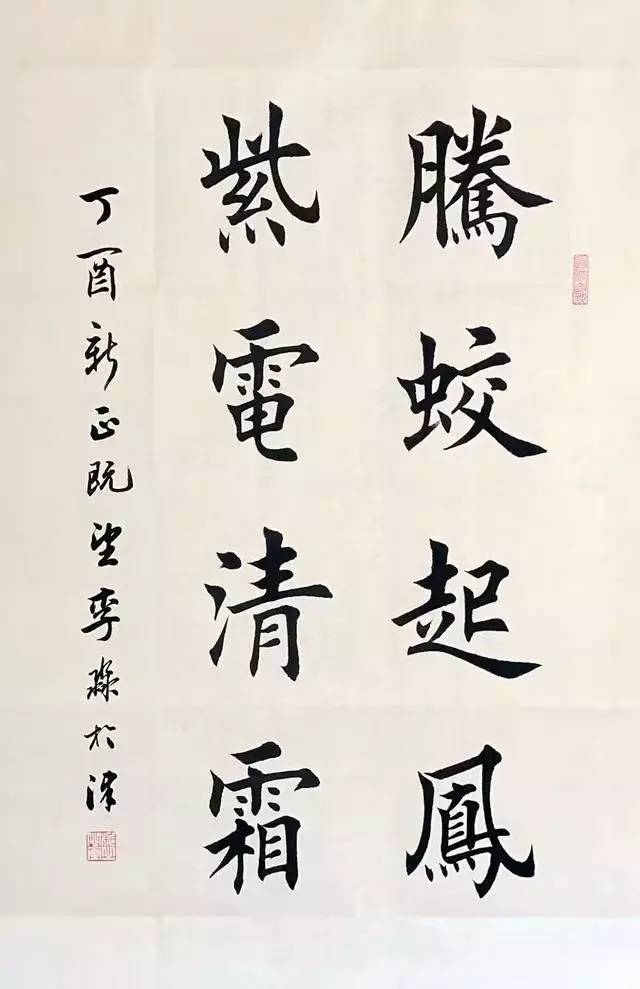 騰蛟起鳳
紫電清霜
丁酉新正既望李淼於津